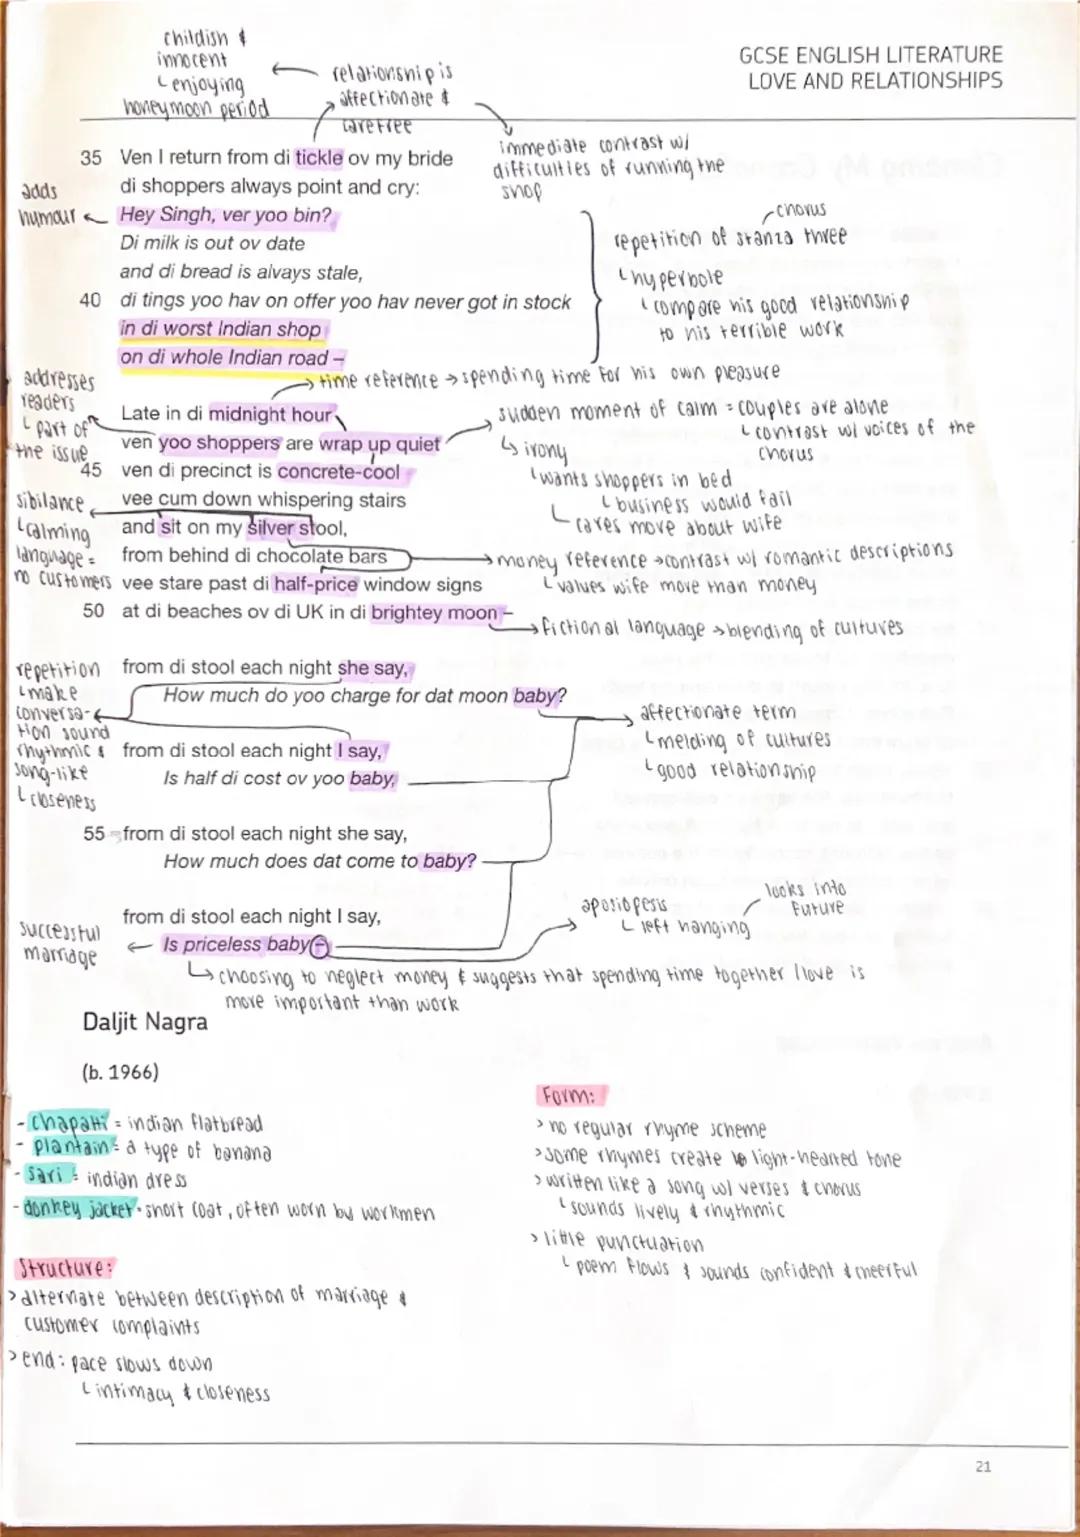 childish &
innocent
↳enjoying
honeymoon period
relationship is
affectionate &
carefree
GCSE ENGLISH LITERATURE
LOVE AND RELATIONSHIPS
immediate contrast w/
difficulties of running the
shop
35 Ven I return from di tickle ov my bride
di shoppers always point and cry:
adds
humour
Hey Singh, ver yoo bin?
Di milk is out ov date
and di bread is alvays stale,
40 di tings yoo hav on offer yoo hav never got in stock
in di worst Indian shop
on di whole Indian road –
chorus
repetition of stanza three
↳hyperbole
↳compare his good relationship
to his terrible work
→time reference →spending time for his own pleasure
addresses
readers
↳part of
the issue
Late in di midnight hour
ven yoo shoppers are wrap up quiet
45 ven di precinct is concrete-cool
vee cum down whispering stairs
and sit on my silver stool,
from behind di chocolate bars
vee stare past di half-price window signs
50 at di beaches ov di UK in di brightey moon –
sudden moment of calm = couples are alone
↳contrast w/ voices of the
chorus
↳irony
↳wants shoppers in bed
↳business would fail
↳cares more about wife
sibilance
↳calming
language =
no customers
money reference →contrast w/ romantic descriptions
↳values wife more than money
→fictional language →blending of cultures
repetition
↳make
conversa-
tion sound
rhythmic &
song-like
↳closeness
from di stool each night she say,
How much do yoo charge for dat moon baby?
from di stool each night I say,
Is half di cost ov yoo baby,
affectionate term
↳melding of cultures
↳good relationship
55 from di stool each night she say,
How much does dat come to baby?
from di stool each night I say,
Is priceless baby –
aposiopesis
↳left hanging
looks into
future
successful
marriage
↳choosing to neglect money & suggests that spending time together / love is
more important than work
Daljit Nagra
(b. 1966)
- chapatti = indian flatbread
- plantain = a type of banana
- sari = indian dress
- donkey jacket = short coat, often worn by workmen
Structure:
>alternate between description of marriage &
customer complaints
>end: pace slows down
↳intimacy & closeness
Form:
> no regular rhyme scheme
>some rhymes create light-hearted tone
>written like a song w/ verses & chorus
↳sounds lively & rhythmic
> little punctuation
↳poem flows & sounds confident & cheerful
21